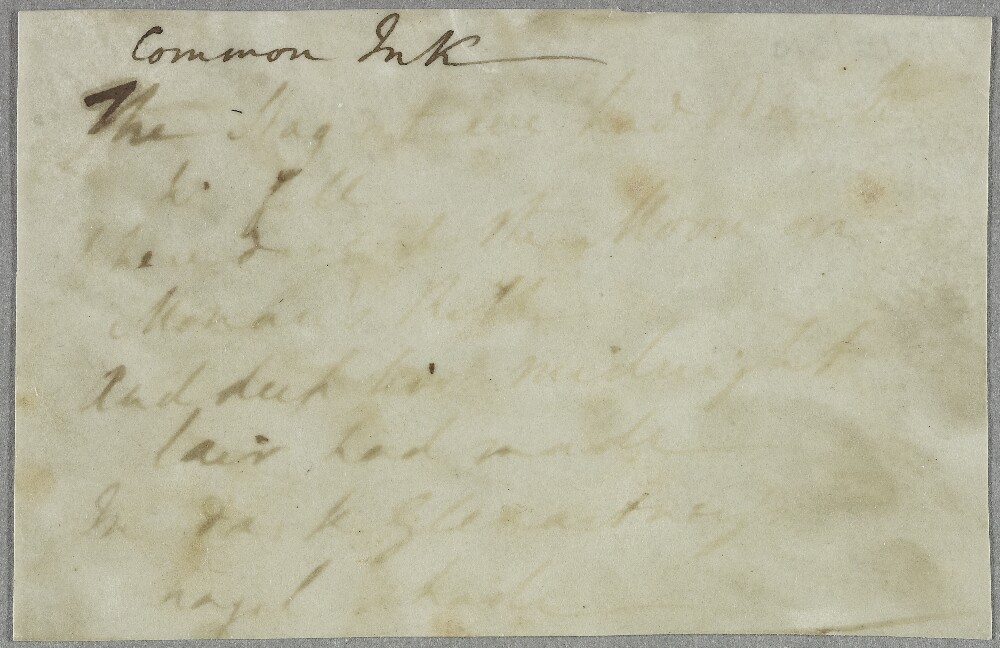 Common Ink
The Stag at eve had
his fill
the Moon on
Monan's Rill
And deep his midnight
lair had made
In
hazel shade